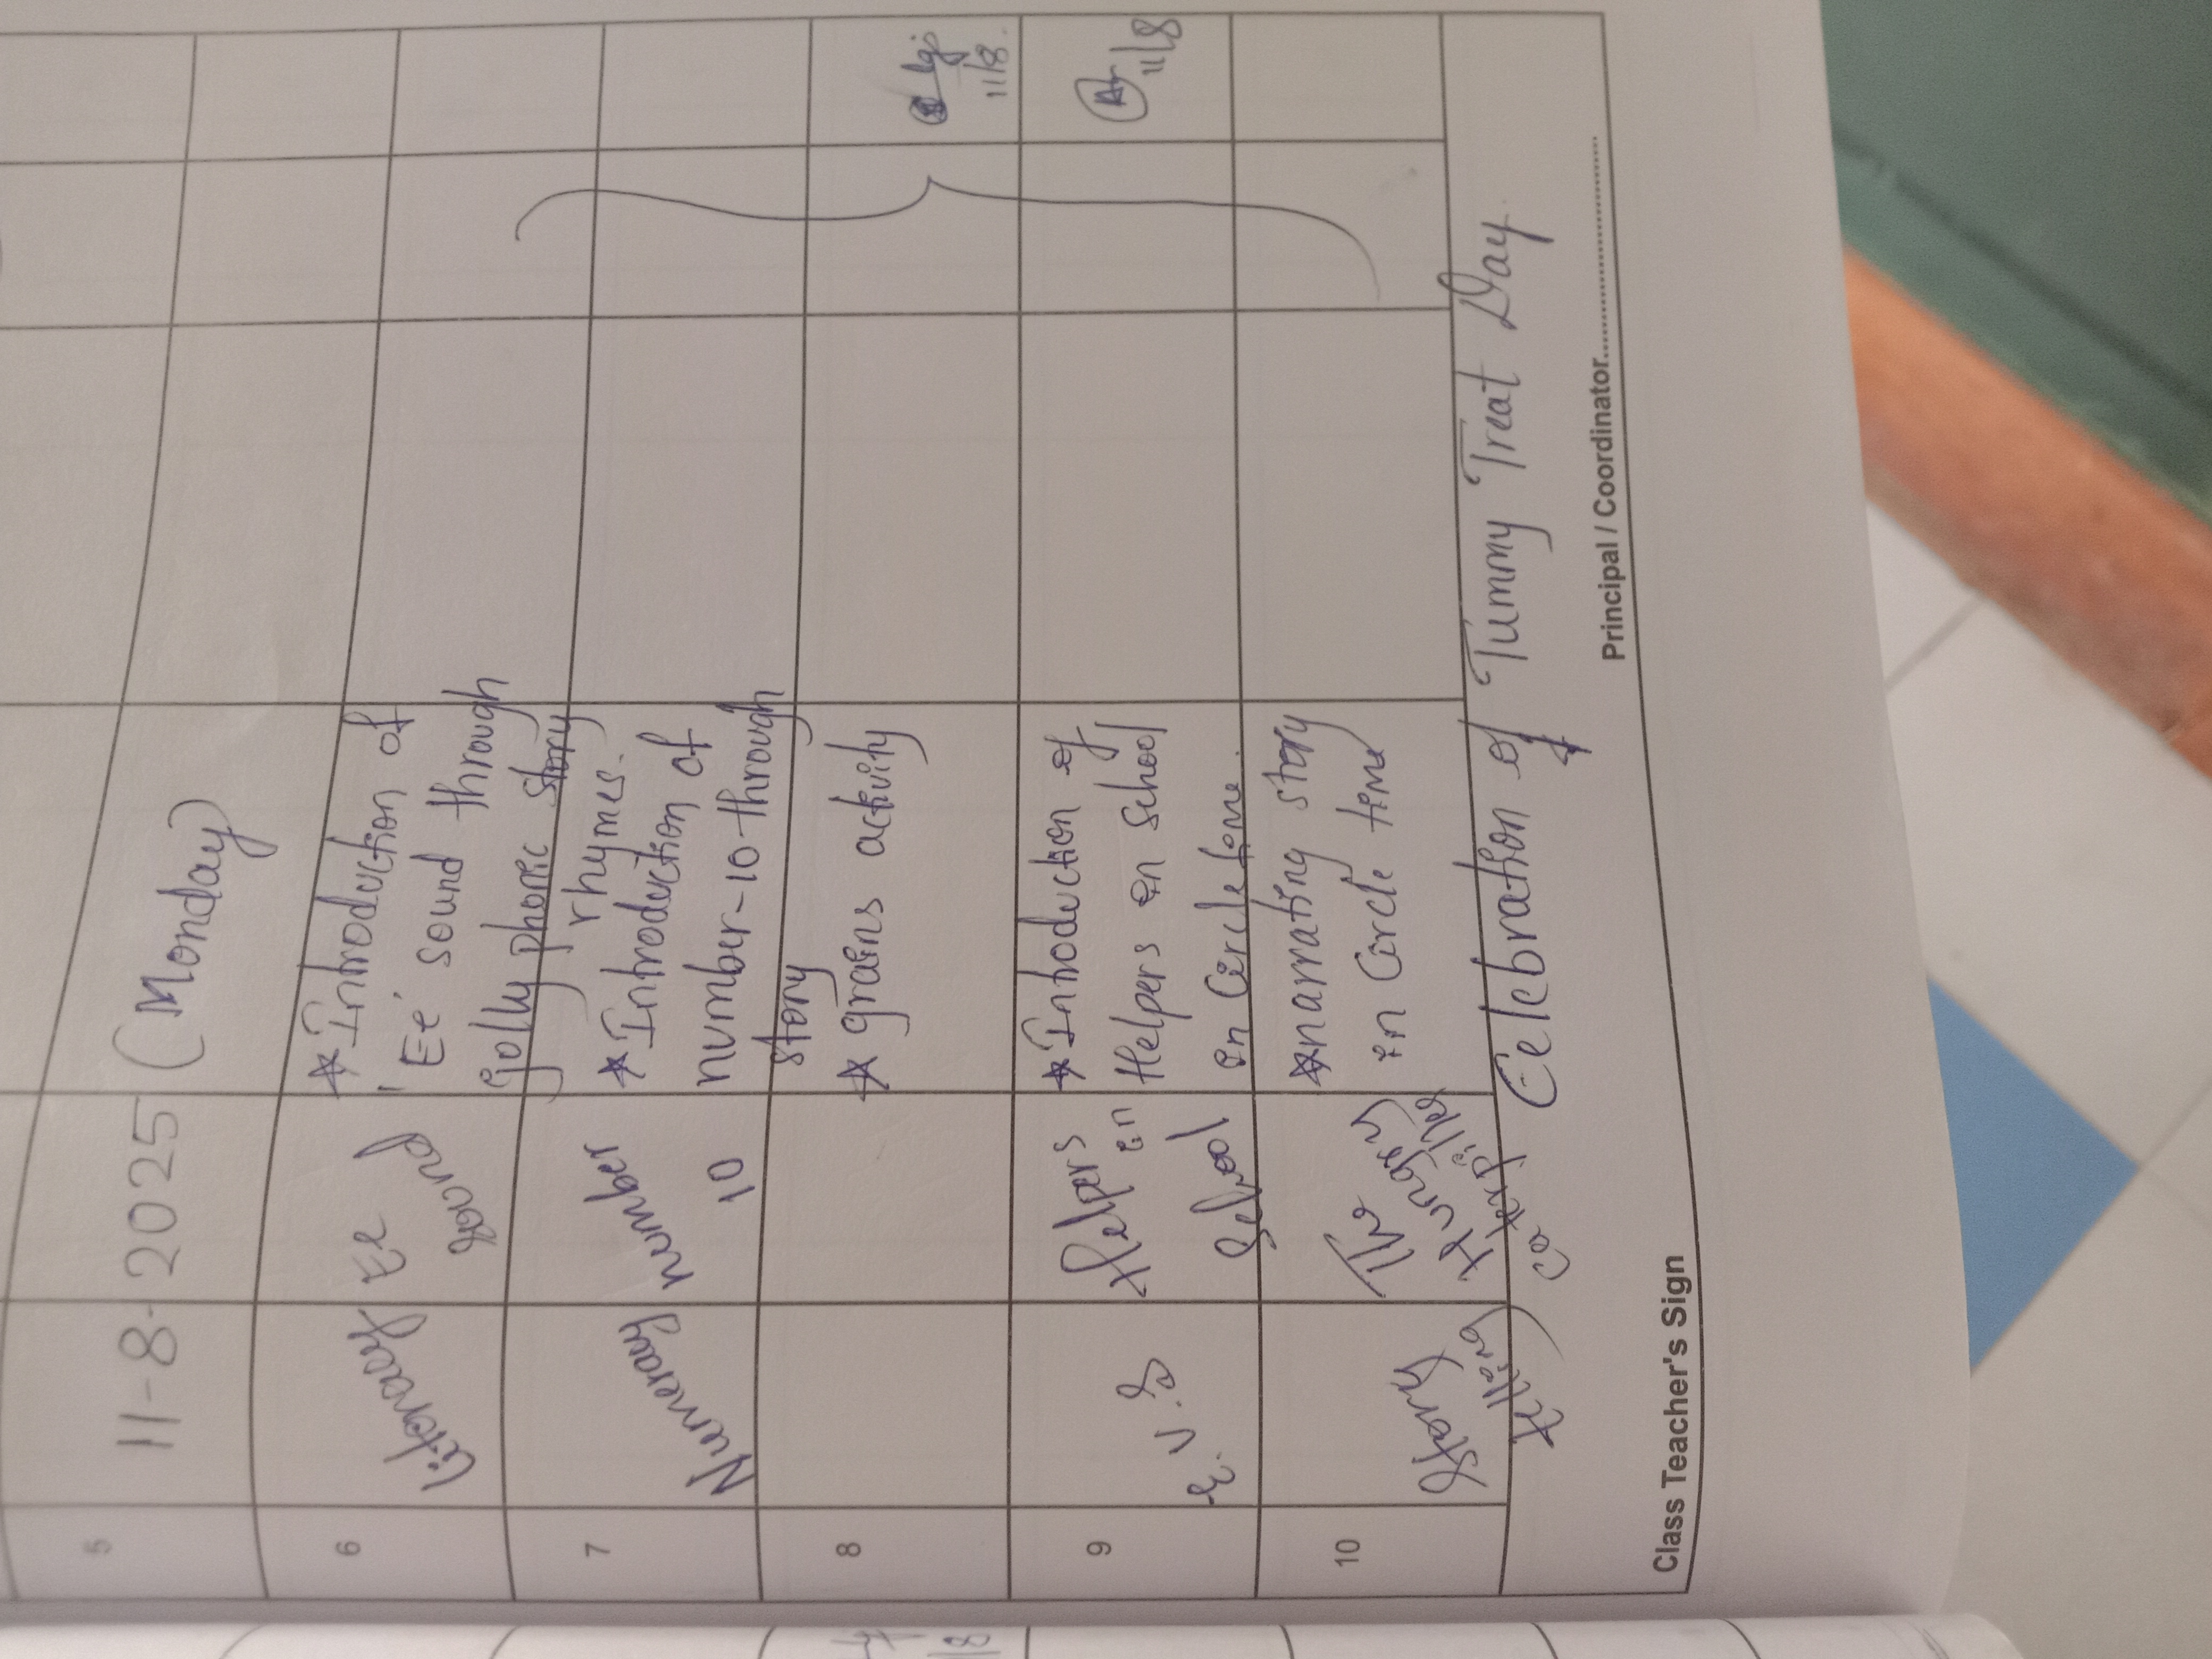 5
11-8-2025 (Monday)
6
Literacy
Ee
sound
* Introduction of
'Ee' sound through
jolly phonic story
rhymes.
7
Numeracy
number
number
10
* Introduction of
number-10 through
story
8
* grains activity
11/8.
9
E.V.S
Helpers
in
School
* Introduction of
Helpers in School
in Circle time.
11/8
10
Story
telling
The
Hungry
Caterpiller
* narrating story
in Circle time
Celebration of Tummy Treat Day.
Class Teacher's Sign
Principal / Coordinator................................